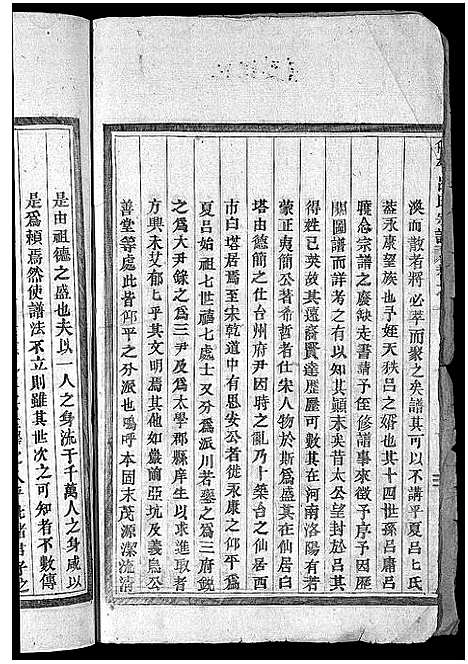 渙而散者將必萃而聚之矣譜其可以不講乎夏呂七氏
蓋永康望族也予姪天秩呂之婿也其十四世孫呂庸呂
雅念宗譜之廢缺走書請予侄修譜事來徵予序予因歷
閱圖譜而詳考之有以知其顛末矣昔太公望封於呂其
得姓已英故其遠裔賢達歷歷可數其在河南洛陽有若
蒙正夷簡公著希哲者仕宋人物於斯為盛其在仙居白
塔由億簡之仕台州府尹因時之亂乃卜築台之仙居西
市白塔居焉至宋乾道中有思安公者徙永康之仰平為
夏呂始祖七世禧七處士又分為派川若鎣之為三府銳
之為大尹銖之為三尹及為太學郡縣庠生以求進取者
方興未艾郁七乎其文明如嚴前亞坑及義烏公
善堂等處此皆仰平之分派也嗚呼本固末茂源潔流清
是由祖德之盛也夫以一人之身流于千萬人之身咸以
是為賴焉然使譜法不立則雖其世次之可知者不數傳